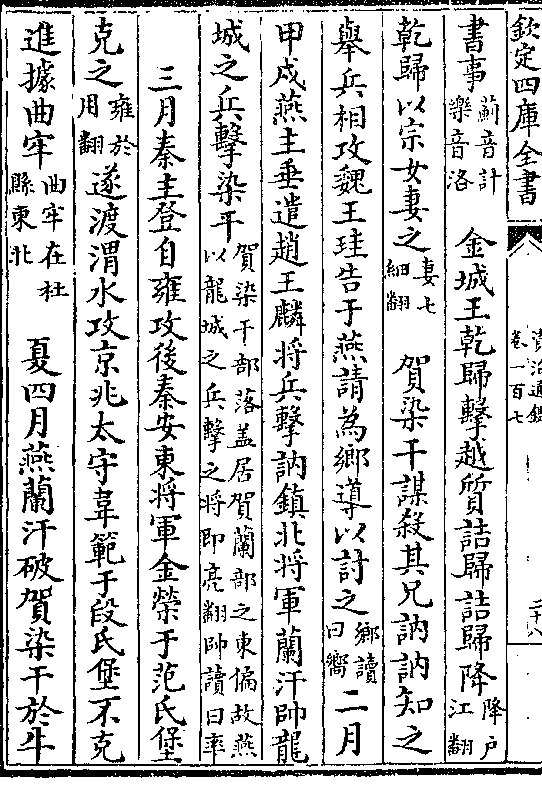 欽定四庫全書
資治通鑑
卷一百七
二十八
書事薊音計樂音洛 金城王乾歸擊越質詰歸詰歸降降户江翻
乾歸以宗女妻之妻七細翻 賀染干謀殺其兄訥訥知之
舉兵相攻魏王珪告于燕請為鄉導以討之鄉讀曰嚮二月
甲戌燕主垂遣趙王麟將兵擊訥鎮北將軍蘭汗帥龍
城之兵擊染干賀染干部落盖居賀蘭部之東偏故燕以龍城之兵擊之將即亮翻帥讀曰率
三月秦主登自雍攻後秦安東將軍金榮于范氏堡
克之雍於用翻遂渡渭水攻京兆太守韋範于段氏堡不克
進據曲牢曲牢在杜縣東北 夏四月燕蘭汗破賀染干於牛